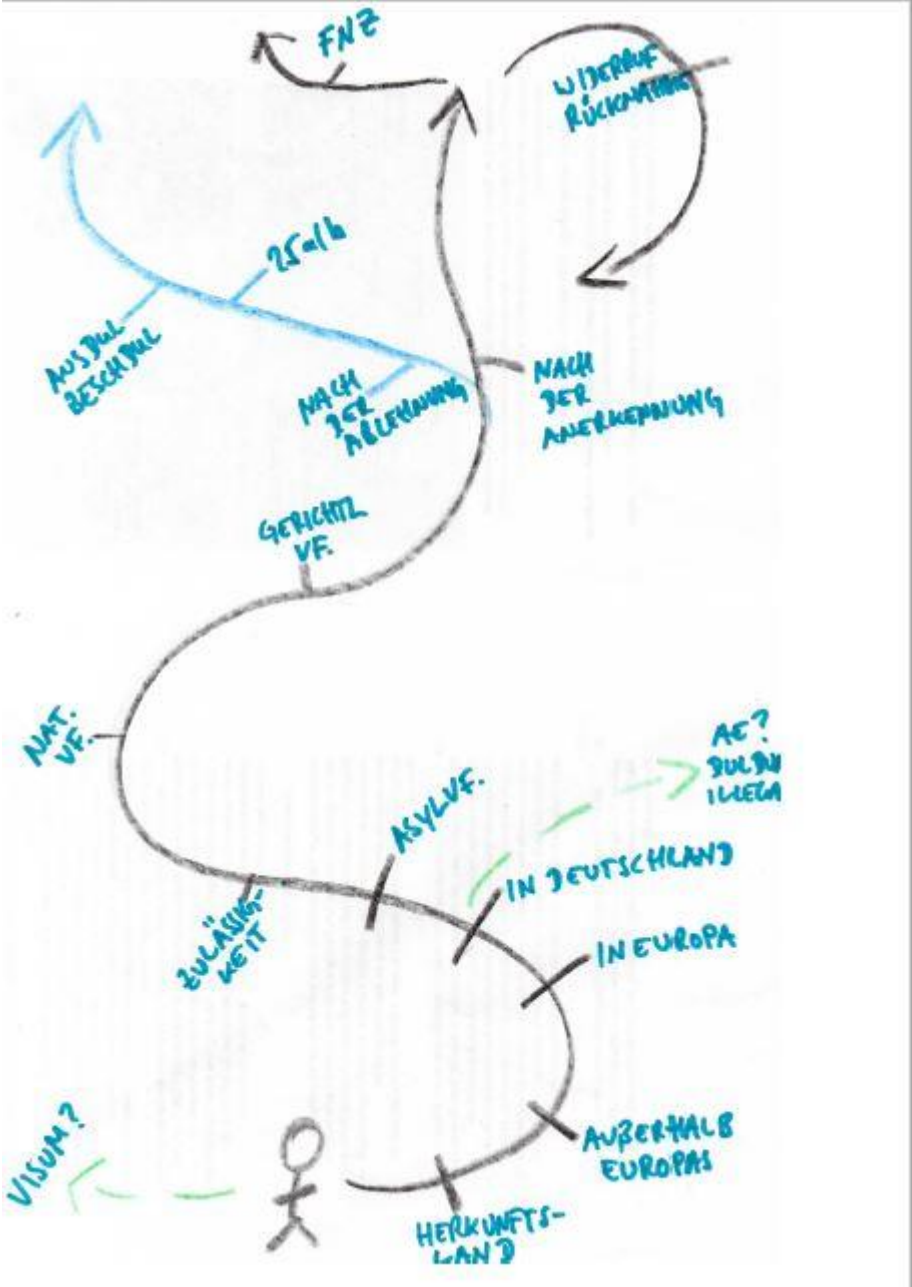 FNZ
WIDERRUF
RÜCKNAHME
25a/b
AUSDUL
BESCHDUL
NACH
DER
ABLEHNUNG
NACH
DER
ANERKENNUNG
GERICHTL
VF.
NAT.
VF.
AE?
DULDU
ILLEGA
ASYLVF.
IN DEUTSCHLAND
ZULÄSSIG-
KEIT
IN EUROPA
VISUM?
AUßERHALB
EUROPAS
HERKUNFTS-
LAND